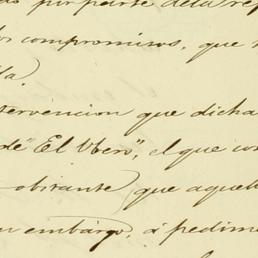 por parte de la rep
compromisos, que
la.
tervencion que dicha
de "El Ubero", el que con
obirante) que aquel
embargo, á pedime